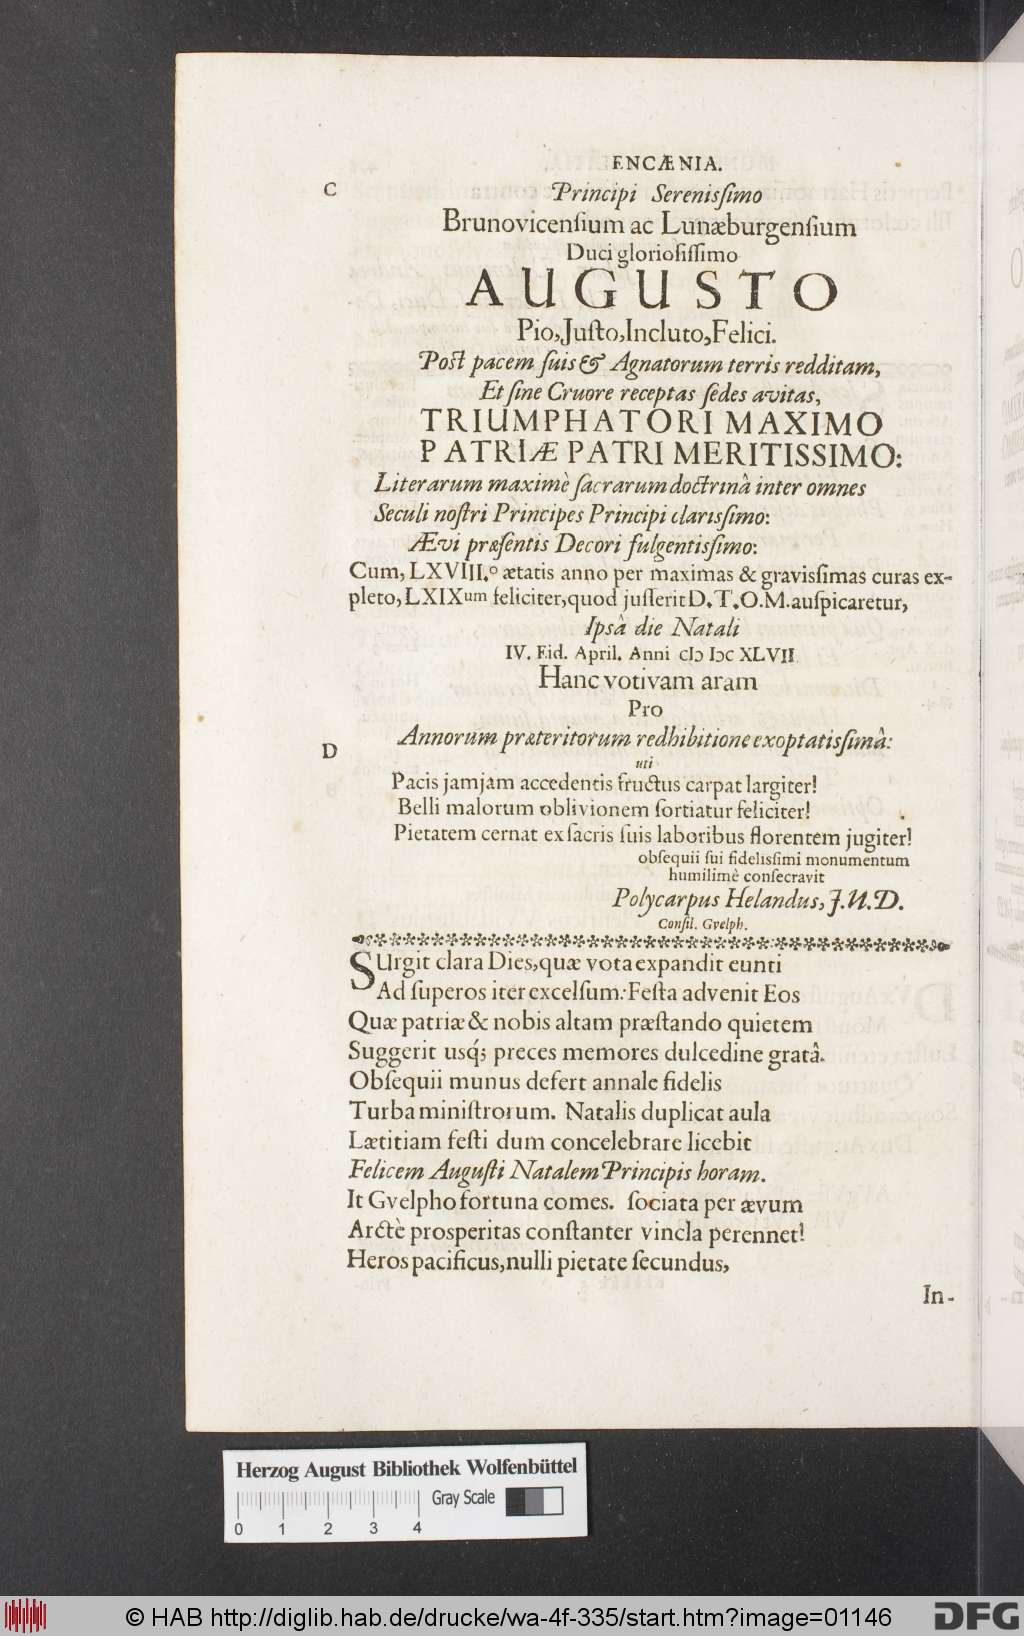 ENCÆNIA.
C
Principi Sereniſſimo
Brunovicenſium ac Lunæburgenſium
Duci glorioſiſſimo
AUGUSTO
Pio, Juſto, Incluto, Felici.
Poſt pacem ſuis & Agnatorum terris redditam,
Et ſine Cruore receptas ſedes avitas,
TRIUMPHATORI MAXIMO
PATRIÆ PATRI MERITISSIMO:
Literarum maximè ſacrarum doctrinâ inter omnes
Seculi noſtri Principes Principi clariſſimo:
Ævi præſentis Decori fulgentiſſimo:
Cum, LXVIII.º ætatis anno per maximas & graviſſimas curas ex-
pleto, LXIXum feliciter, quod juſſerit D. T. O. M. auſpicaretur,
Ipsâ die Natali
IV. Eid. April. Anni cIↄ Iↄc XLVII
Hanc votivam aram
Pro
Annorum præteritorum redhibitione exoptatiſſimâ:
D
uti
Pacis jamjam accedentis fructus carpat largiter!
Belli malorum oblivionem ſortiatur feliciter!
Pietatem cernat ex ſacris ſuis laboribus florentem jugiter!
obſequii ſui fideliſſimi monumentum
humilimè conſecravit
Polycarpus Helandus, J. U. D.
Conſil. Gvelph.
SUrgit clara Dies, quæ vota expandit eunti
Ad ſuperos iter excelſum: Feſta advenit Eos
Quæ patriæ & nobis altam præſtando quietem
Suggerit usq́; preces memores dulcedine gratâ.
Obſequii munus defert annale fidelis
Turba miniſtrorum. Natalis duplicat aula
Lætitiam feſti dum concelebrare licebit
Felicem Auguſti Natalem Principis horam.
It Gvelpho fortuna comes. ſociata per ævum
Arctè proſperitas conſtanter vincla perennet!
Heros pacificus, nulli pietate ſecundus,
In-
Herzog August Bibliothek Wolfenbüttel
Gray Scale
0 1 2 3 4
© HAB http://diglib.hab.de/drucke/wa-4f-335/start.htm?image=01146
DFG